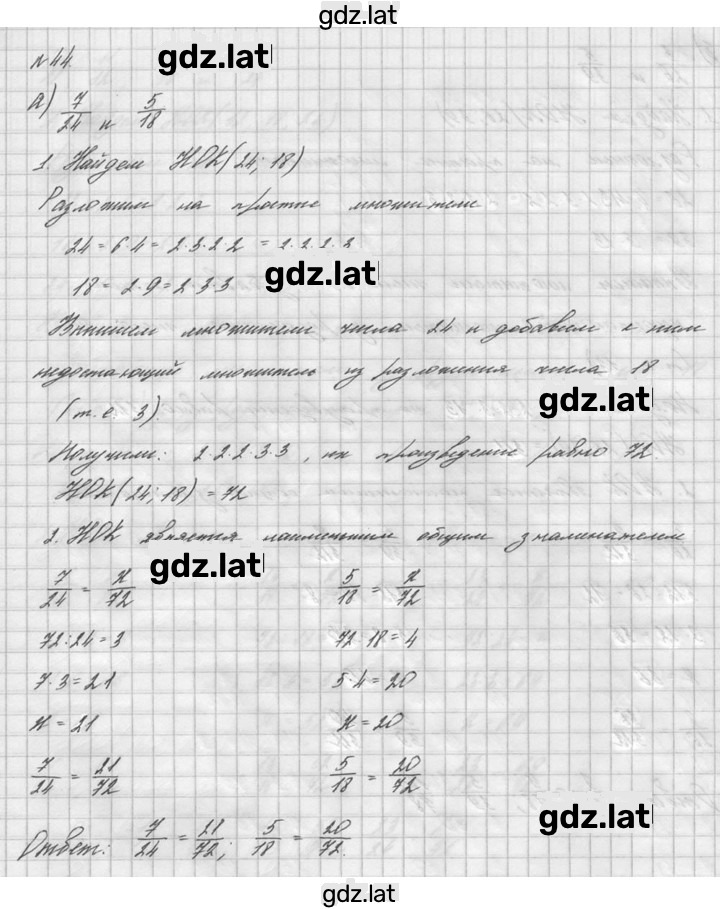 gdz.lat
№44. gdz.lat
а) 7/24 и 5/18
1. Найдем НОК(24; 18)
Разложим на простые множители
24 = 6·4 = 2·3·2·2 = 2·2·2·3
18 = 2·9 = 2·3·3 gdz.lat
Выпишем множители числа 24 и добавим к ним
недостающий множитель из разложения числа 18
(т.е. 3). gdz.lat
Получим: 2·2·2·3·3, их произведение равно 72.
НОК(24; 18) = 72
2. НОК является наименьшим общим знаменателем
gdz.lat
7/24 = x/72 5/18 = x/72
72:24 = 3 72:18 = 4
7·3 = 21 5·4 = 20
x = 21 x = 20
7/24 = 21/72 5/18 = 20/72
gdz.lat
Ответ: 7/24 = 21/72; 5/18 = 20/72.
gdz.lat